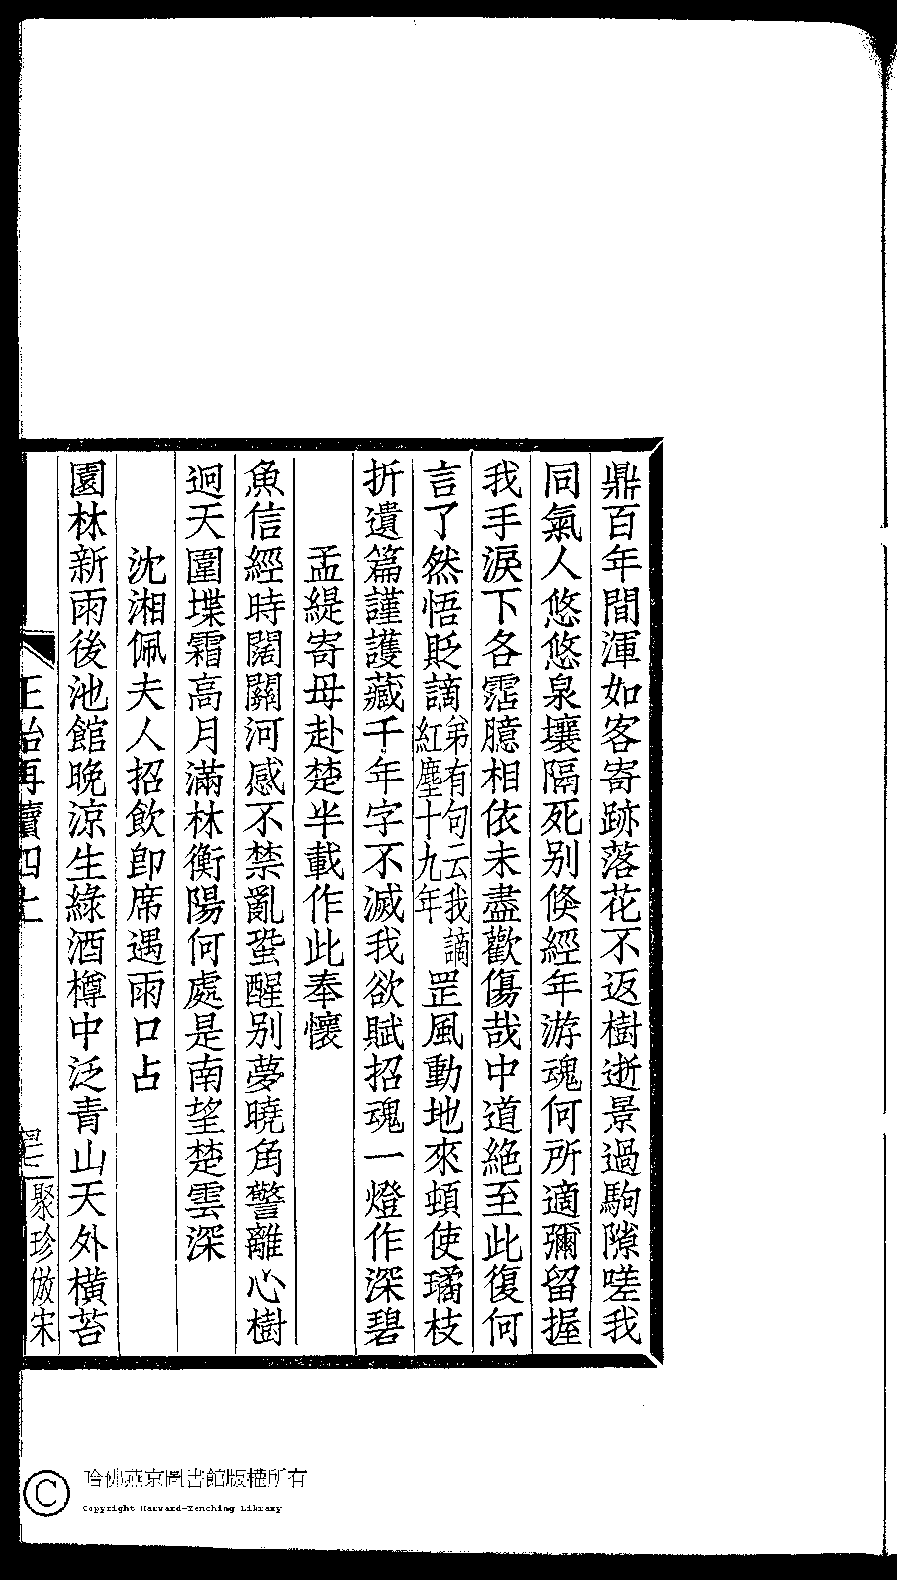 鼎百年間渾如客寄跡落花不返樹逝景過駒隙嗟我
同氣人悠悠泉壤隔死別倏經年游魂何所適彌留握
我手淚下各霑臆相依未盡歡傷哉中道絕至此復何
言了然悟貶謫弟有句云我謫紅塵十九年罡風動地來頓使璚枝
折遺篇謹護藏千年字不滅我欲賦招魂一燈作深碧
孟緹寄母赴楚半載作此奉懷
魚信經時闊關河感不禁亂蛩醒別夢曉角警離心樹
迥天圍堞霜高月滿林衡陽何處是南望楚雲深
沈湘佩夫人招飲卽席遇雨口占
園林新雨後池館晚涼生綠酒樽中泛青山天外橫苔
正始再續四上
聚珍倣宋
哈佛燕京圖書館版權所有
Copyright Harvard-Yenching Library